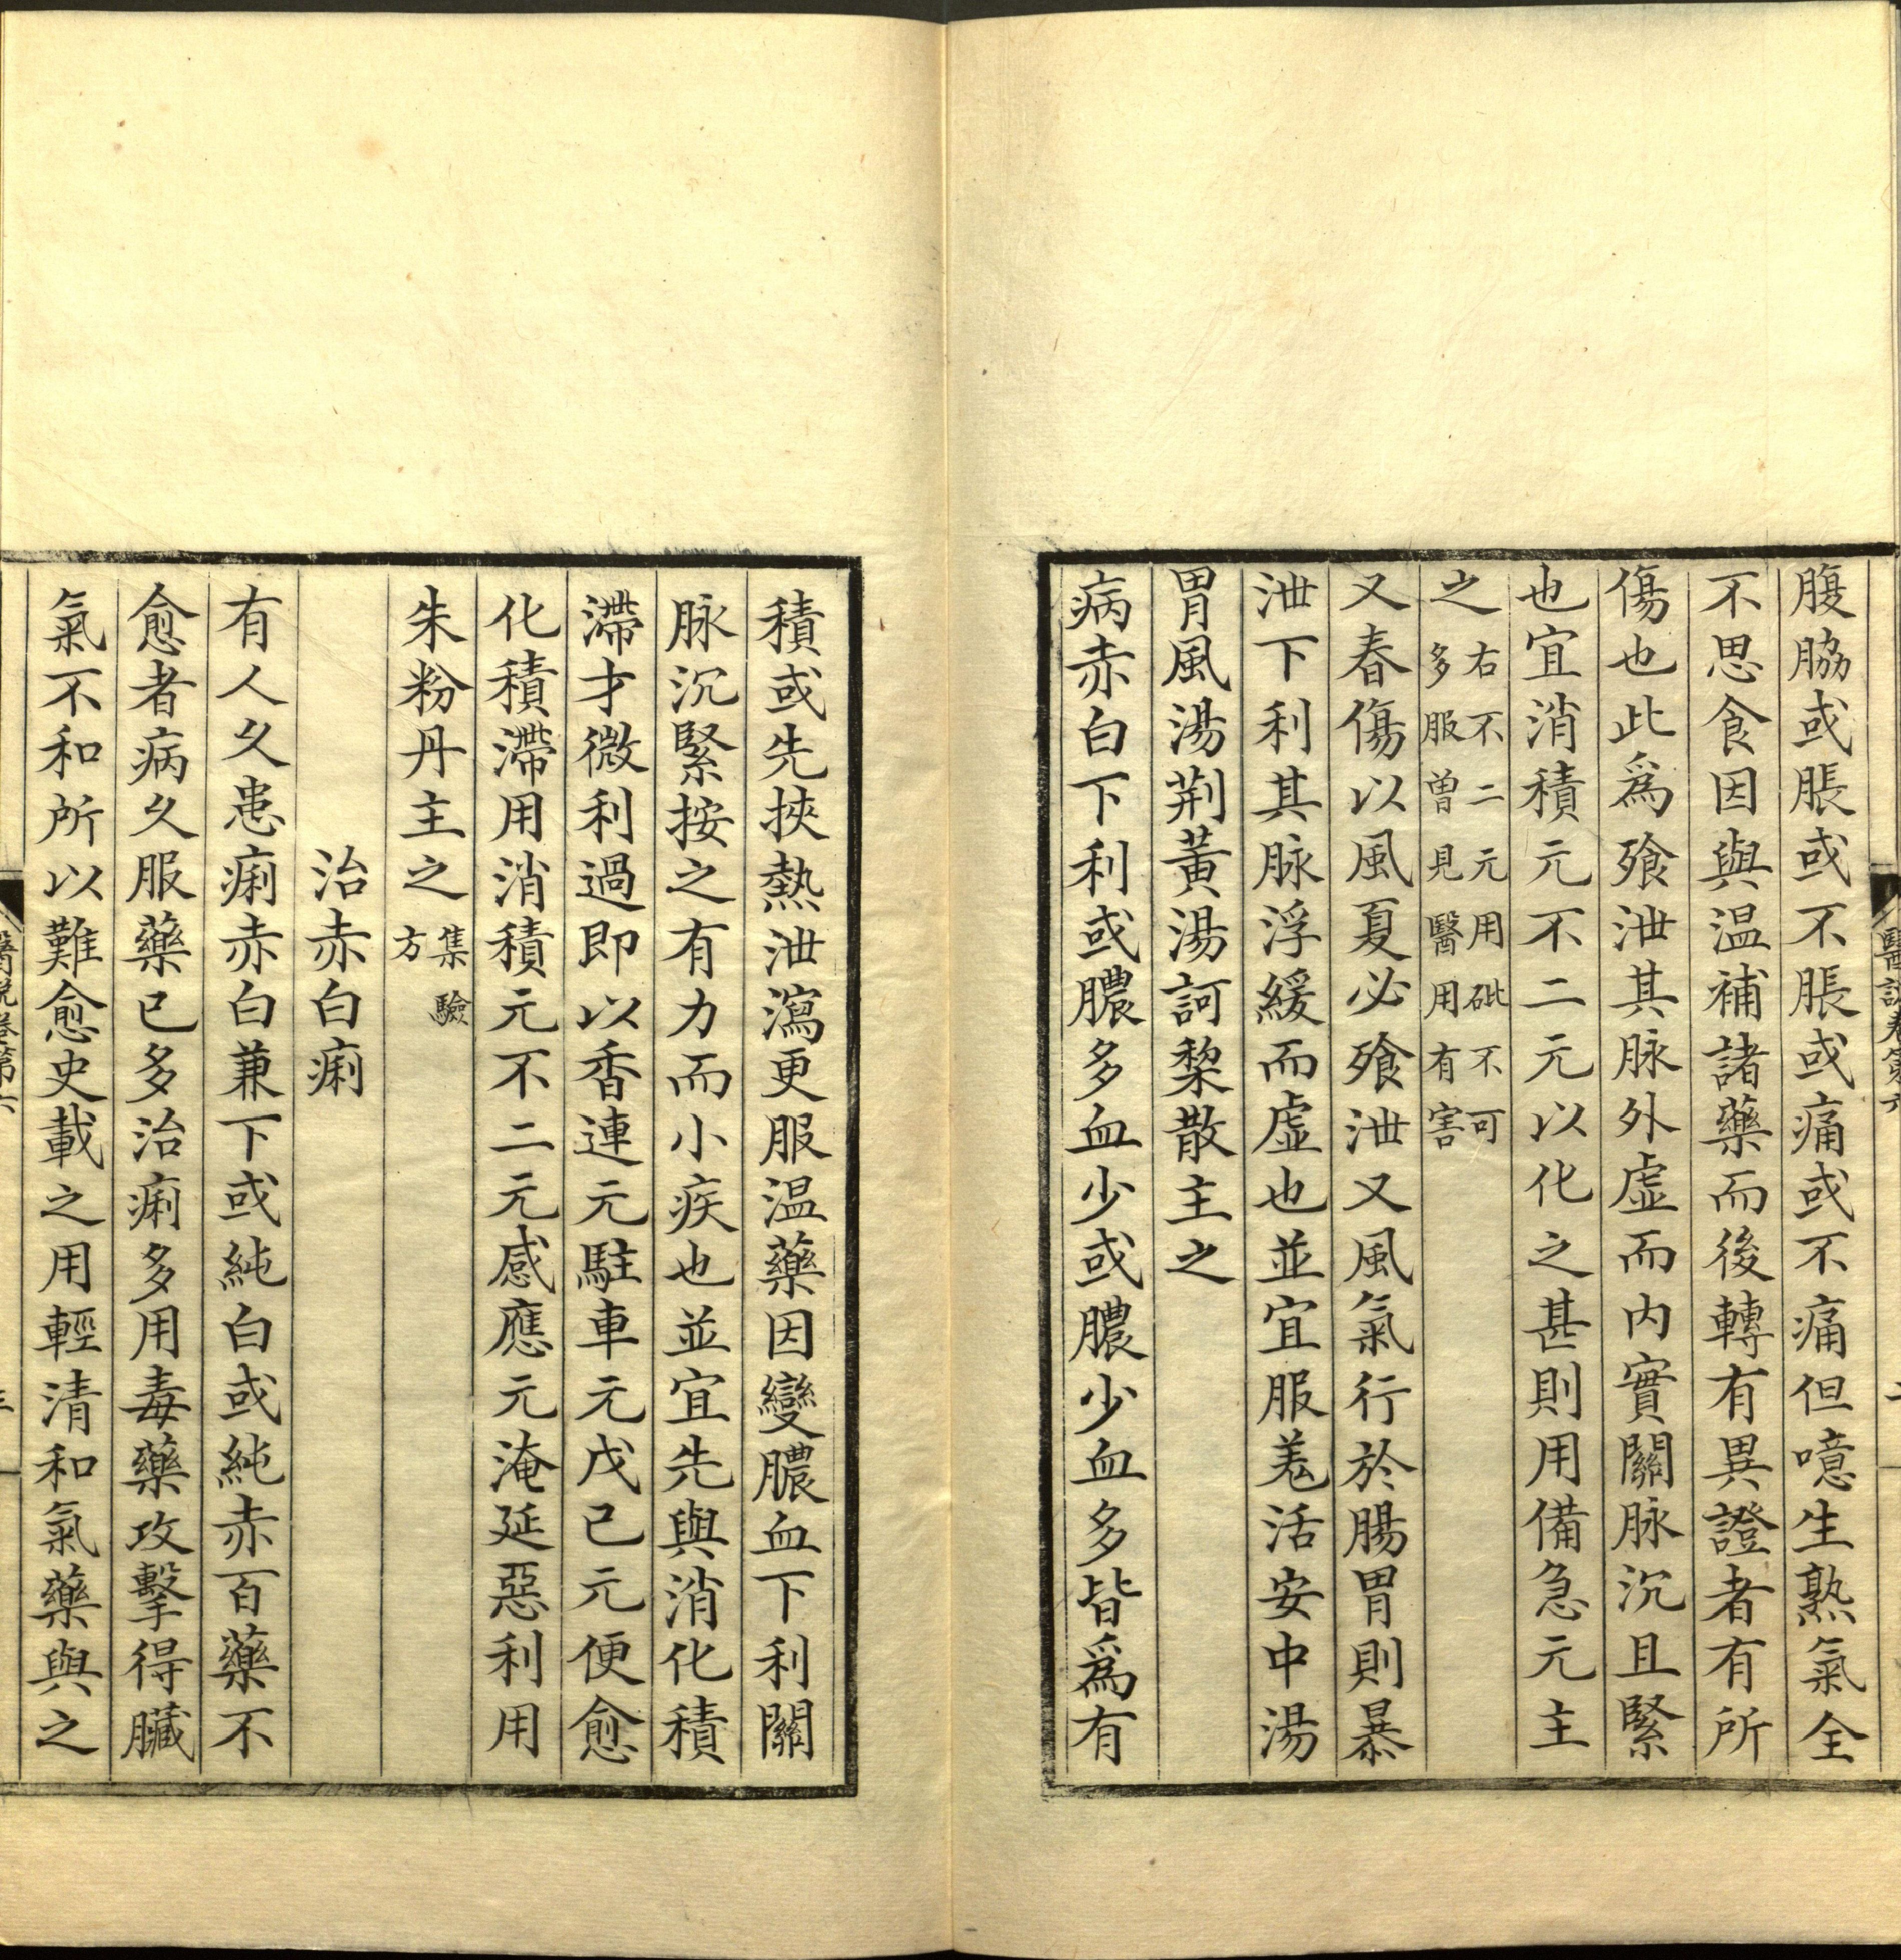 腹脇或脹或不脹或痛或不痛但噫生熟氣全
不思食因與温補諸藥而後轉有異證者有所
傷也此爲飱泄其脉外虛而内實關脉沉且緊
也宜消積元不二元以化之甚則用備急元主
之右不二元用砒不可多服曽見醫用有害
又春傷以風夏必飱泄又風氣行於腸胃則暴
泄下利其脉浮緩而虛也並宜服羌活安中湯
胃風湯荆黃湯訶棃散主之
病赤白下利或膿多血少或膿少血多皆爲有
積或先挾熱泄瀉更服温藥因變膿血下利關
脉沉緊按之有力而小疾也並宜先與消化積
滯才微利過即以香連元駐車元戊己元便愈
化積滯用消積元不二元感應元淹延惡利用
朱粉丹主之集驗方
治赤白痢
有人久患痢赤白兼下或純白或純赤百藥不
愈者病久服藥已多治痢多用毒藥攻擊得臟
氣不和所以難愈史載之用輕清和氣藥與之
醫說卷第六